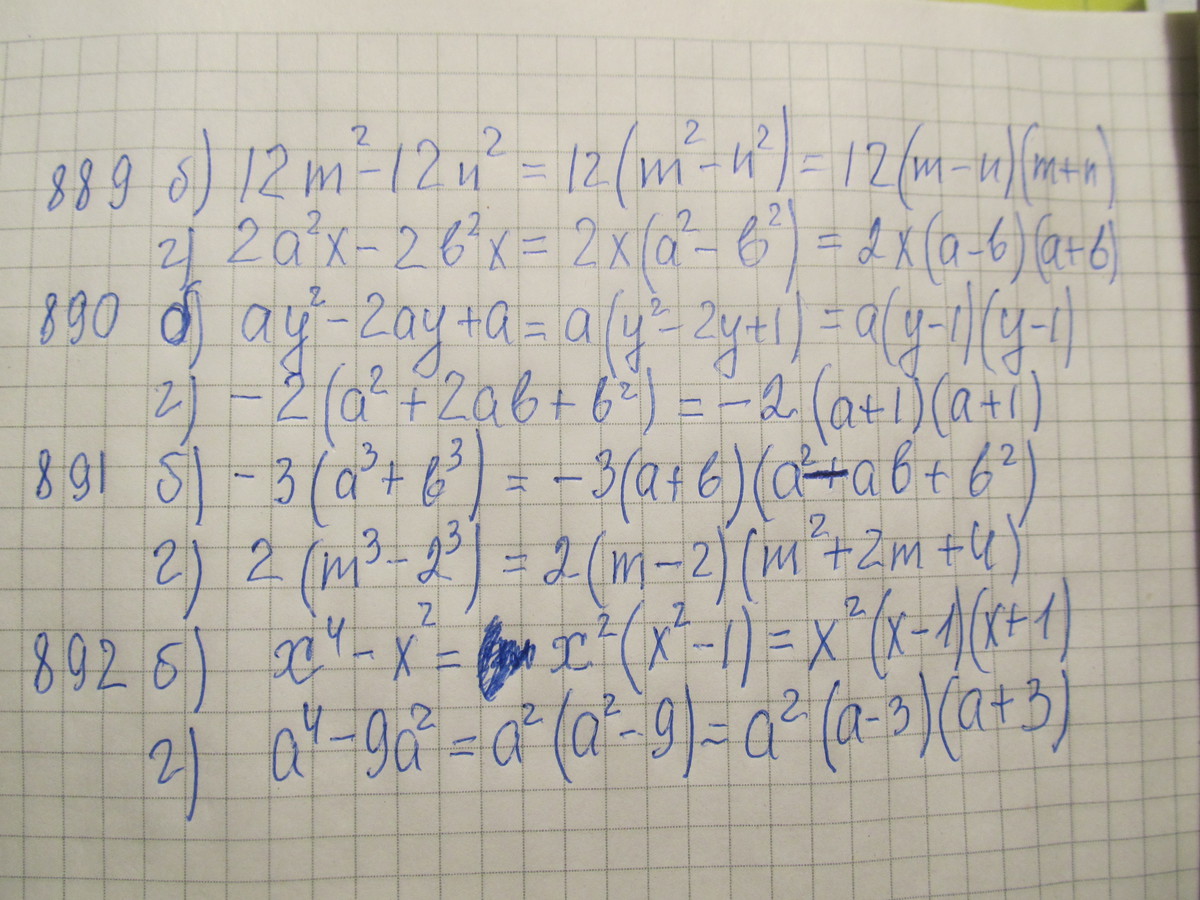 889 б) 12m² - 12n² = 12(m² - n²) = 12(m-n)(m+n)
г) 2a²x - 2в²x = 2x(a² - в²) = 2x(a-в)(a+в)
890 б) ay² - 2ay + a = a(y² - 2y + 1) = a(y-1)(y-1)
г) -2(a² + 2aв + в²) = -2(a+1)(a+1)
891 б) -3(a³ + в³) = -3(a+в)(a² - aв + в²)
г) 2(m³ - 2³) = 2(m-2)(m² + 2m + 4)
892 б) x⁴ - x² = x²(x² - 1) = x²(x-1)(x+1)
г) a⁴ - 9a² = a²(a² - 9) = a²(a-3)(a+3)